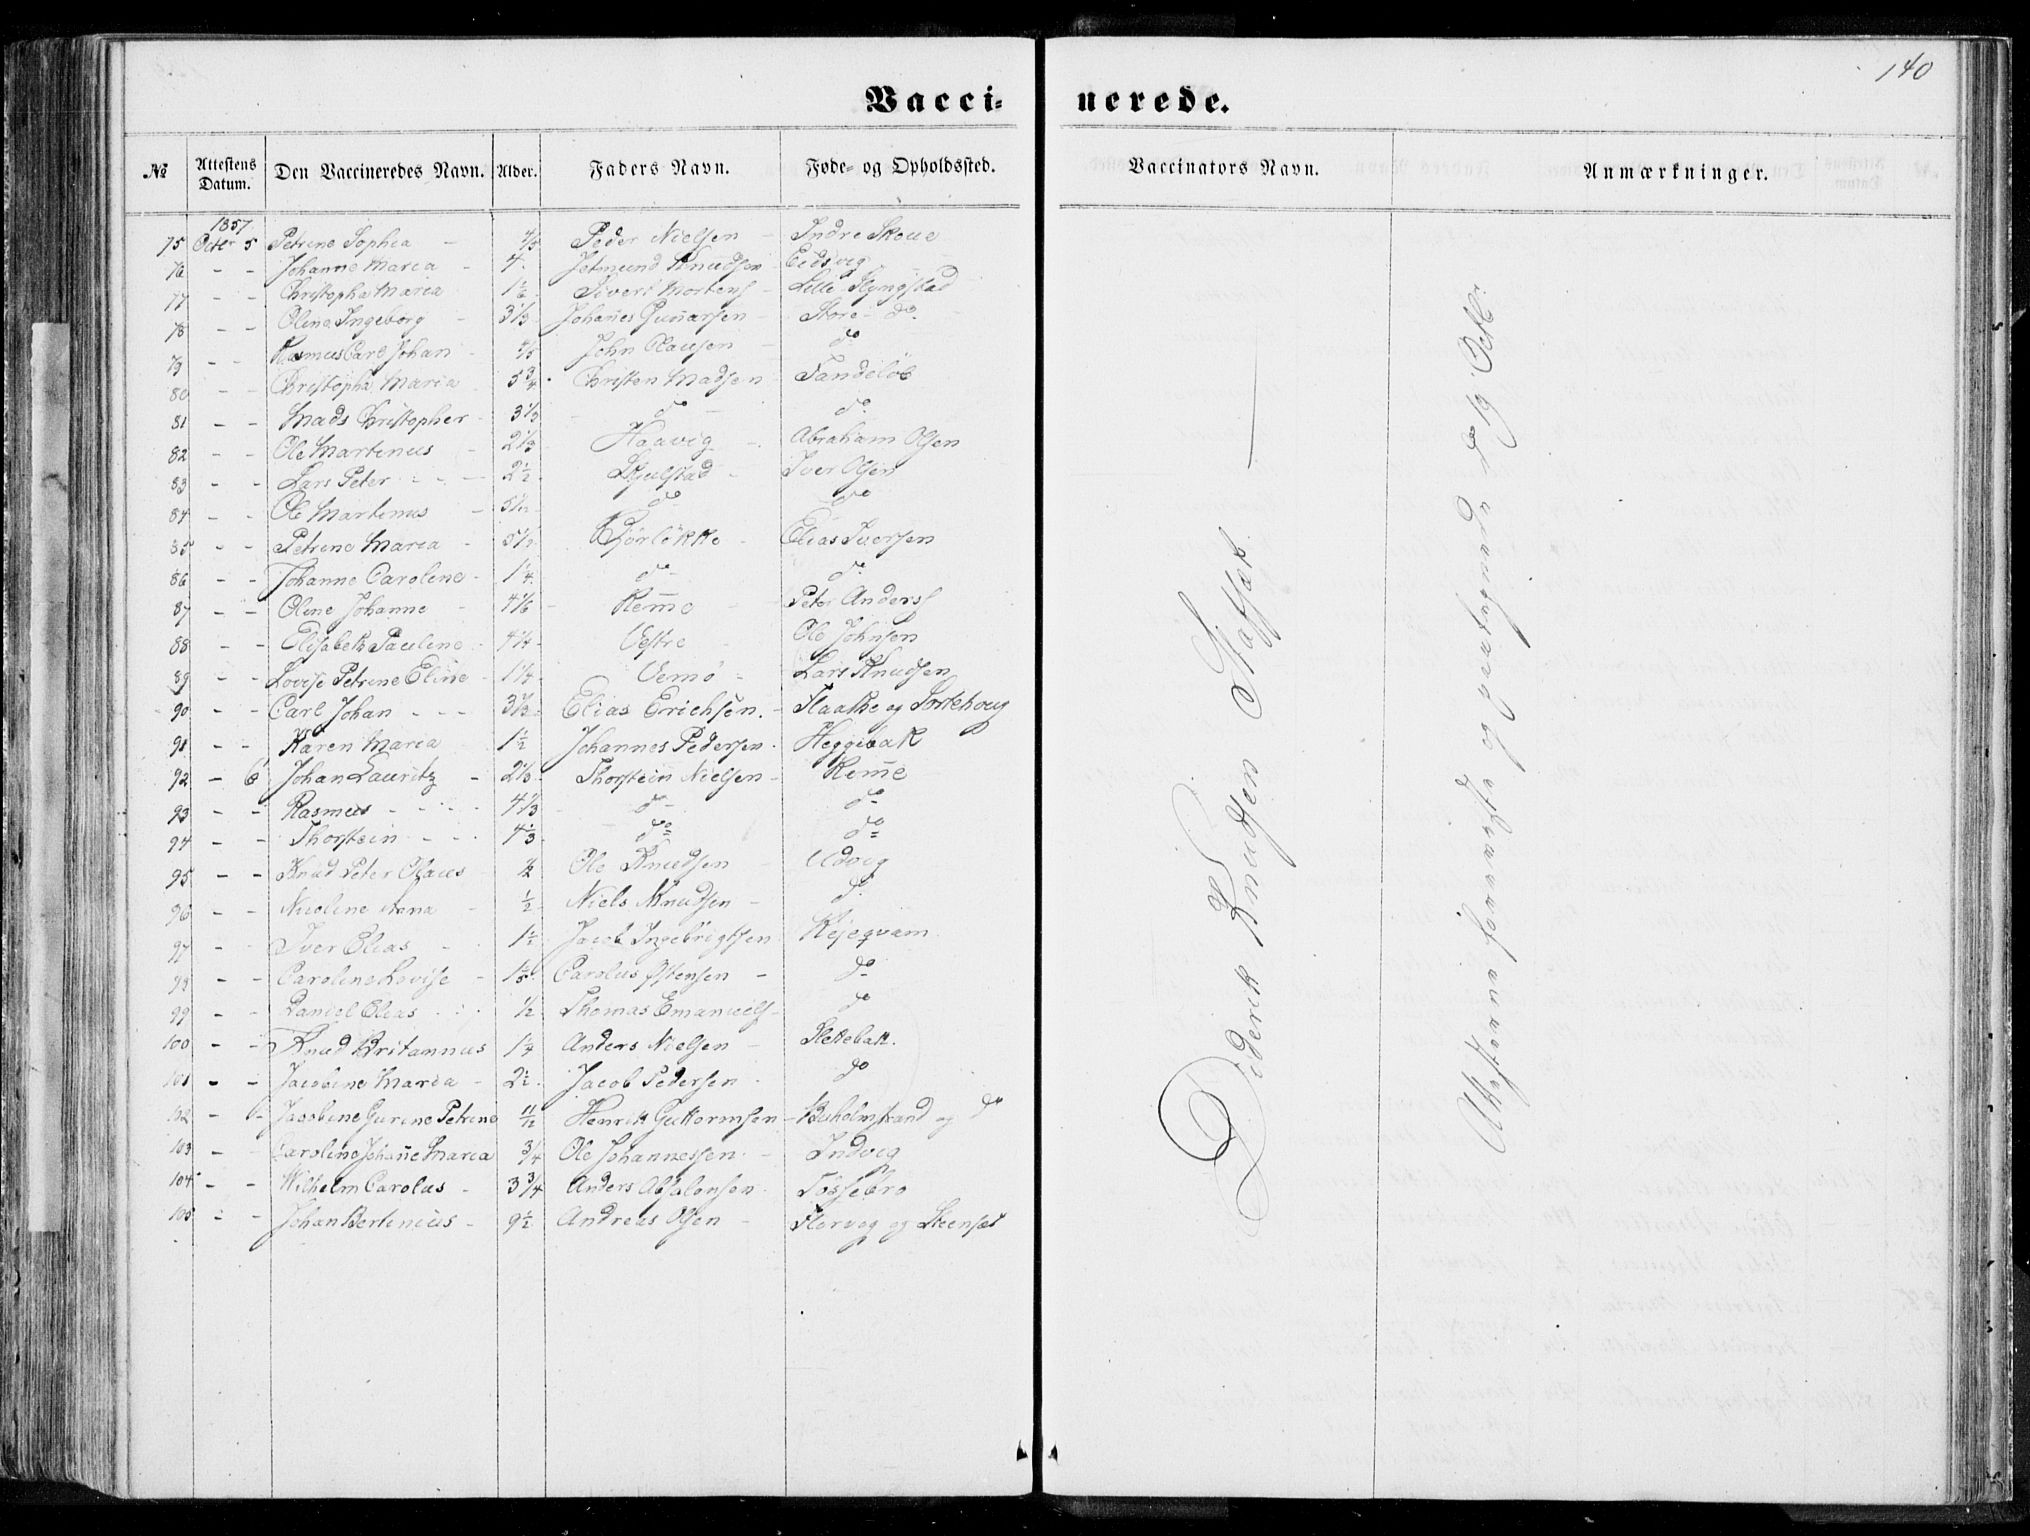 140
Vacci= nerede.
No Attestens Datum. Den Vaccineredes Navn. Alder. Faders Navn. Føde- og Opholdssted. Vaccinators Navn. Anmærkninger.
1857
75 Octbr 5 Petrine Sophia - Peder Nielsen - Indre Skoue
76 - - Johanne Maria - 4. Jetmund Knudsen - Eidsvig
77 - - Christopha Maria Siveri Mortens - Lille Flyngstad
78 - - Oline Ingeborg - 3 1/3 Johanes Gunarsen - Store do
79 - - Rasmus Carl Johan - John Clausen - do
80 Christopha Maria 5 3/4 Christen Madsen - Tandeløb
81 - - Mads Christopher - 3 1/3 - do - do
82 - - Ole Martinus - 2 1/3 Haavig - Abraham Olsen
83 - - Lars Peter - - - 2 1/2 Skjelstad - Iver Olsen
84 - - Ole Martinus - do do
85 - - Petrine Maria - - Elias Iversen
86 - - Johanne Caroline - 1 1/4 do - do
87 - - Oline Johanne - 4 1/6 - Remme - Peter Anders
88 - - Elisabeth Pauline - 4 1/4 Vestre - Ole Johnsen
89 - - Lovise Petrine Eline - 1 1/4 Nemø - Lars Knudsen
90 - - Carl Johan - - - Elias Erichsen. - Flaathe og Sortehoug
91 - - Karen Maria 1 1/2 Johannes Pedersen - Heggibak
92 - 6 Johan Lauritz - 2 1/3 Thorstein Nielsen - Remme
93 - - Rasmus - - - - 4 1/3 - do - do
94 - - Thorstein - - - 4 1/3 do do
95 - - Knud Peter Olaus 1/2 Ole Knudsen - Udvig
96 - - Nicoline Anna - 1/2 Niels Knudsen - do
97 - Iver Elias - 1 1/2 Jacob Ingebrigtsen
98 - - Caroline Lovise - Carolus Østensen - do
99 - - Daniel Elias - - 1/2 Thomas Emanuels - do
100 - - Knud Britannus 1 1/4 Anders Nielsen - Slettebak.
101 - - Jacobine Maria - 2 1/2 Jacob Pedersen - do
102 - - Jacobine Gurine Petrine Henrik Guttormsen - Buholmstrand og do
103 - - Caroline Johane Maria 3/4 Ole Johannessen - - Indvig
104 - - Wilhelm Carolus - 3 3/4 Anders Absalonsen Tøssebro
105 - - Johan Bertinius - 9 1/2 Andreas Olsen - Florvog og Steensæt
Diderik Knudsen Stafsæt
Attesterne foreviste og paategnede d. 19 Octbr.